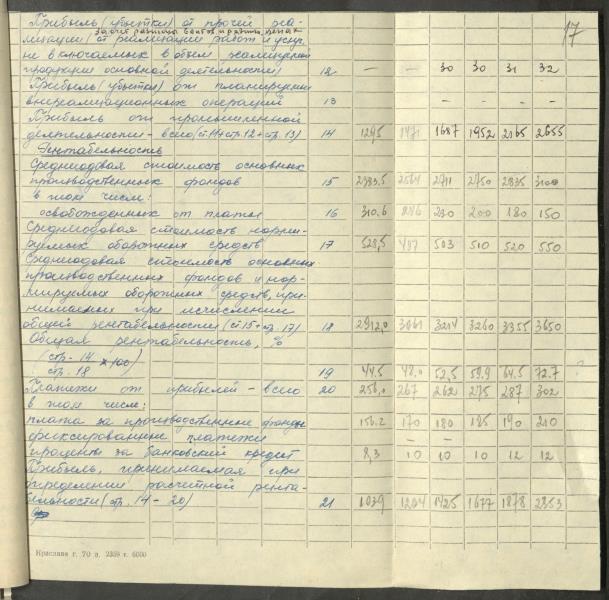 17
Прибыль (убытки) от прочей реа-
лизации (от реализации работ и услуг,
не включаемых в объем реализуемой
продукции основной деятельности) 12 — — 30 30 31 32
Прибыль (убыток) от планируемых
внереализационных операций 13 - - - -
Прибыль от промышленной
деятельности - всего (ст. 11+стр. 12+стр. 13) 14 1295 1471 1687 1952 2165 2655
Рентабельность
Среднегодовая стоимость основных
производственных фондов 15 2383,5 2564 2711 2750 2835 3100
в том числе:
освобожденных от платы 16 310,6 246 230 200 180 150
Среднегодовая стоимость норми-
руемых оборотных средств 17 528,5 497 503 510 520 550
Среднегодовая стоимость основных
производственных фондов и нор-
мируемых оборотных средств, при-
нимаемых при исчислении
общей рентабельности (ст 15+стр. 17) 18 2912,0 3061 3214 3260 3355 3650
Общая рентабельность, %
(стр. 14 х 100)
стр. 18 19 44.5 48.0 52,5 59.9 64.5 72.7
Платежи от прибылей - всего 20 256,0 267 262 275 287 302
в том числе:
плата за производственные фонды 156.2 170 180 185 190 210
фиксированные платежи — —
проценты за банковский кредит 8,3 10 10 10 12 12
Прибыль, принимаемая при
определении расчетной рента-
бельности (стр. 14 - 20) 21 1039 1204 1425 1677 1878 2353
Краслава г. 70 з. 2359 т. 6000